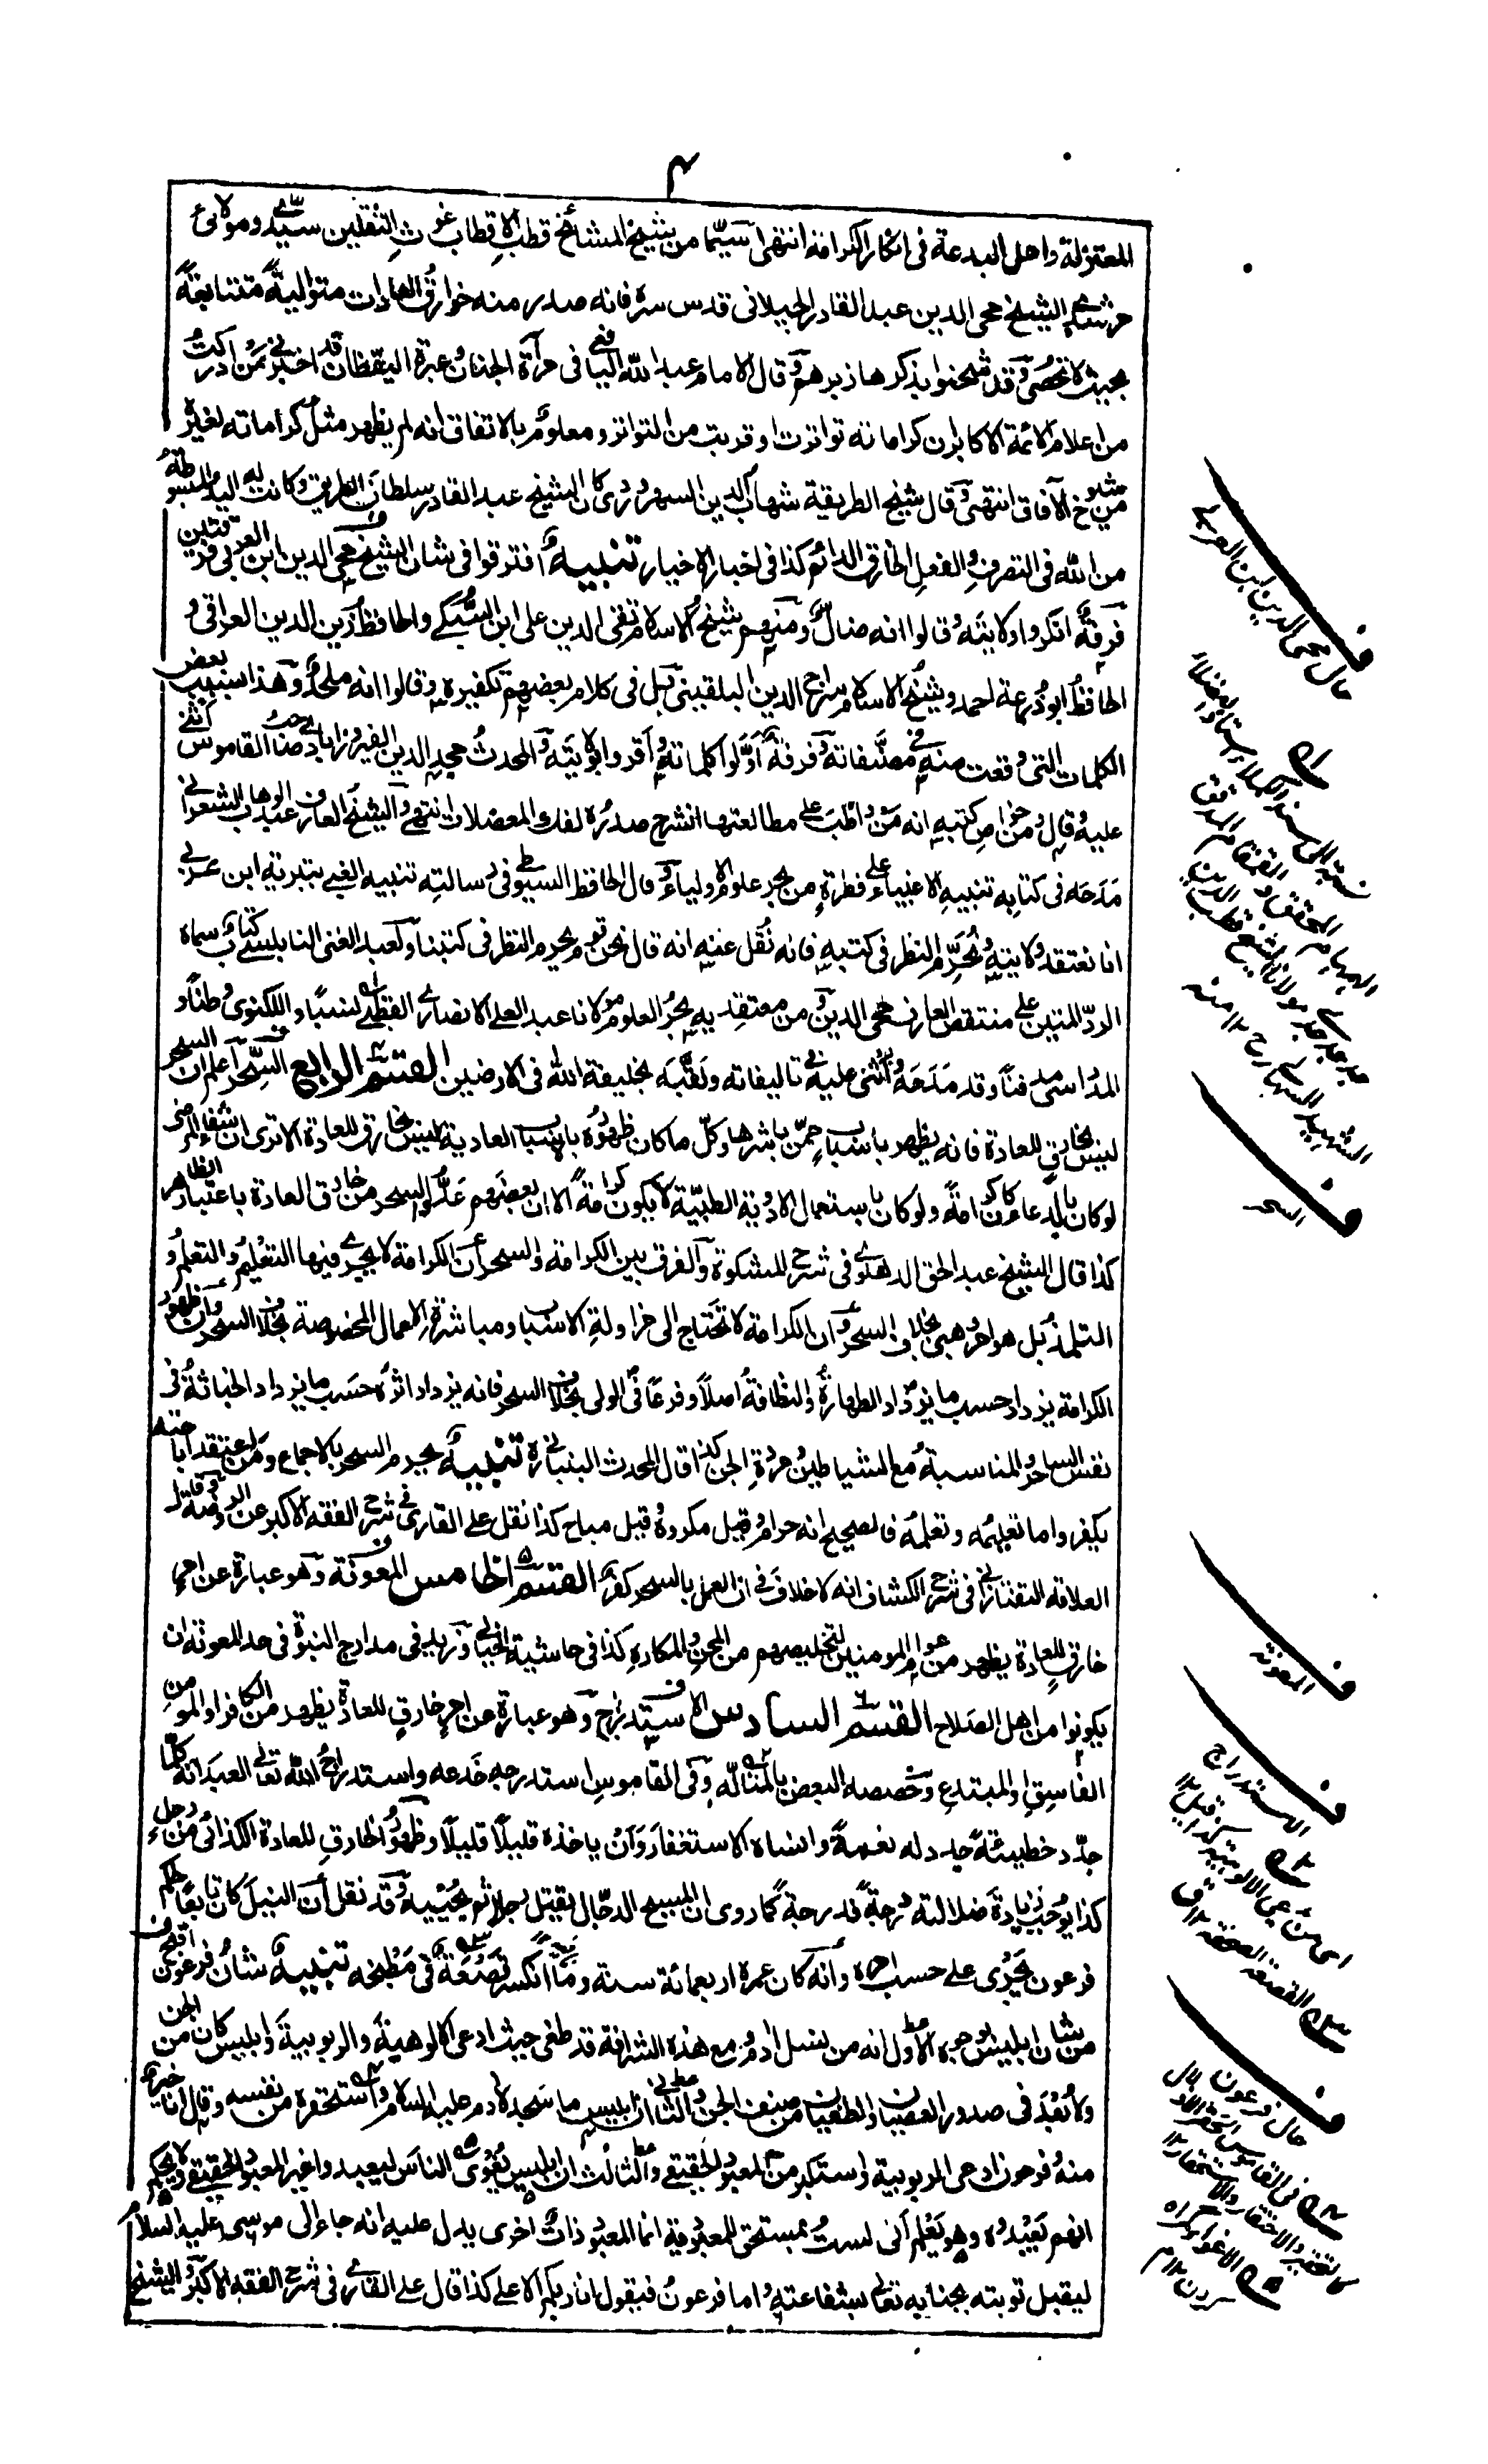 ٣
المعتزلة واهل البدعة فى انكار الكرامة انتهى سيّما من شيخ المشائخ قطب الاقطاب غوث الثقلين سيدى ومولائى
مرشدى الشيخ محى الدين عبد القادر الجيلانى قدس سره فانه صدر منه خوارق العادات متوالية متتابعة
بحيث لا تحصى وقد شحنوا بذكرها زبرهم وقال الامام عبد الله اليافعى فى مرآة الجنان وعبرة اليقظان قد اخبرنى من ادركت
من اعلام الائمة الاكابر ان كراماته تواترت او قربت من التواتر ومعلوم بالاتفاق انه لم يظهر مثل كراماته لغيره
من شيوخ الآفاق انتهى وقال شيخ الطريقة شهاب الدين السهروردى كان الشيخ عبد القادر سلطان الطريق وكانت له اليد المبسوطة
من الله فى التصرف والفعل الخارق الدائم كذا فى اخبار الاخيار تنبيه افترقوا فى شان الشيخ محى الدين ابن العربى فرقتين
فرقة انكروا ولايته وقالوا انه ضال ومنهم شيخ الاسلام تقى الدين على ابن السبكى والحافظ زين الدين العراقى و
الحافظ ابو زرعة احمد وشيخ الاسلام سراج الدين البلقينى بل فى كلام بعضهم تكفيره وقالوا انه ملحد وهذا بسبب بعض
الكلمات التى وقعت منه فى مصنفاته وفرقة اوّلوا كلماته واقروا بولايته والمحدث مجد الدين الفيروزابادى صاحب القاموس اثنى
عليه وقال ومن خواص كتبه انه من واظب على مطالعتها انشرح صدره لفك المعضلات انتهى والشيخ العارف عبد الوهاب الشعرانى
مدحه فى كتابه تنبيه الاغبياء على قطرة من بحر علوم الاولياء وقال الحافظ السيوطى فى رسالته تنبيه الغبى بتبرئة ابن عربى
انا نعتقد ولايته ونُحرّم النظر فى كتبه فانه نُقل عنه انه قال نحن قوم يحرم النظر فى كتبنا ولعبد الغنى النابلسى كتاب سماه
الردّ المتين على منتقص العارف محى الدين ومن معتقديه بحر العلوم مولانا عبد العلى الانصارى القطبى نسبًا واللكنوى وطنًا و
المدراسى مدفنًا وقد مدحه واثنى عليه فى تاليفاته ولقّبه بخليفة الله فى الارضين القسم الرابع السحر اعلم ان السحر
ليس بخارق للعادة فانه يظهر باسباب ممّن باشرها وكل ما كان ظهوره باسباب العادية ليس بخارق للعادة الا ترى ان شفاء المرضى
لو كان بالدعاء كان كرامة ولو كان باستعمال الادوية الطبية لا يكون كرامة الا ان بعضهم عدّوا السحر من خارق العادة باعتبار الظاهر
كذا قال الشيخ عبد الحق الدهلوى فى شرح المشكوة والفرق بين الكرامة والسحر ان الكرامة لا يجرى فيها التعليم والتعلم و
التلمذ بل هو امر وهبى بخلاف السحر وان الكرامة لا تحتاج الى مزاولة الاسباب ومباشرة الاعمال المخصوصة بخلاف السحر وان ظهور
الكرامة يزداد حسب ما يزداد الطهارة والنظافة اصلًا وفرعًا فى الولى بخلاف السحر فانه يزداد اثره حسب ما يزداد الخباثة فى
نفس الساحر والمناسبة مع الشياطين ومردة الجن كذا قال المحدث البنبانى تنبيه يحرم السحر بالاجماع ومن اعتقد اباحته
يكفر واما تعليمه وتعلمه فالصحيح انه حرام وقيل مكروه وقيل مباح كذا نقل على القارى فى شرح الفقه الاكبر عن الروضة وقال
العلامة التفتازانى فى شرح الكشاف انه لا خلاف فى ان العمل بالسحر كفر القسم الخامس المعونة وهو عبارة عن امر
خارق للعادة يظهر من عوام المومنين لتخليصهم من المحن والمكاره كذا فى حاشية الخيالى وزيد فى مدارج النبوة فى حد المعونة ان
يكونوا من اهل الصلاح القسم السادس الاستدراج وهو عبارة عن امر خارق للعادة يظهر من الكافر او المومن
الفاسق او المبتدع وخصصه البعض بالمتألّه وفى القاموس استدرجه خدعه واستدراج الله تعالى العبد انه كلما
جدّد خطيئة جدد له نعمة وانساه الاستغفار وان ياخذه قليلًا قليلًا وظهور الخارق للعادة الكذائى من رجل
كذا يوجب زيادة ضلالته درجة فدرجة كما روى ان المسيح الدجّال يقتل رجلا ثم يحييه وقد نقل ان النيل كان تابعًا لحكم
فرعون يجرى على حسب امره وانه كان عمره اربعمائة سنة وما انكسر قصعة فى مطبخه تنبيه شان فرعون اقبح
من شان ابليس بوجوه الاول انه من نسل ادم مع هذه الشرافة قد طغى حيث ادعى الالوهية والربوبية وابليس كان من الجن
ولا بُعد فى صدور العصيان والطغيان من صنف الجن والثانى ان ابليس ما سجد لادم عليه السلام واستحقره من نفسه وقال انا خير
منه وفرعون ادعى الربوبية واستكبر من المعبود الحقيقى والثالث ان ابليس يُغوى الناس ليعبدوا غير المعبود الحقيقى ولا يحكم
انهم تعبدوه وهو يعلم انى لست بمستحق للمعبودية انما المعبود ذات اخرى يدل عليه انه جاء الى موسى عليه السلام
ليقبل توبته بجنابه تعالى بشفاعته واما فرعون فيقول انا ربكم الاعلى كذا قال على القارى فى شرح الفقه الاكبر والشيخ
ف
حال محى الدين ابن العربى
المحقق والقمقام المدقق
مولانا الشيخ قطب الدين
الشهيد السهالوى رح ١٢ منه
ف
السحر
ف
المعونة
ف
الاستدراج
اى مدّعى الالوهية كذا قيل ١٢
القصعة الصحفة ١٢ ق
ف
حال فرعون
فى القاموس
الاغوا گمراه
كردن ١٢ م